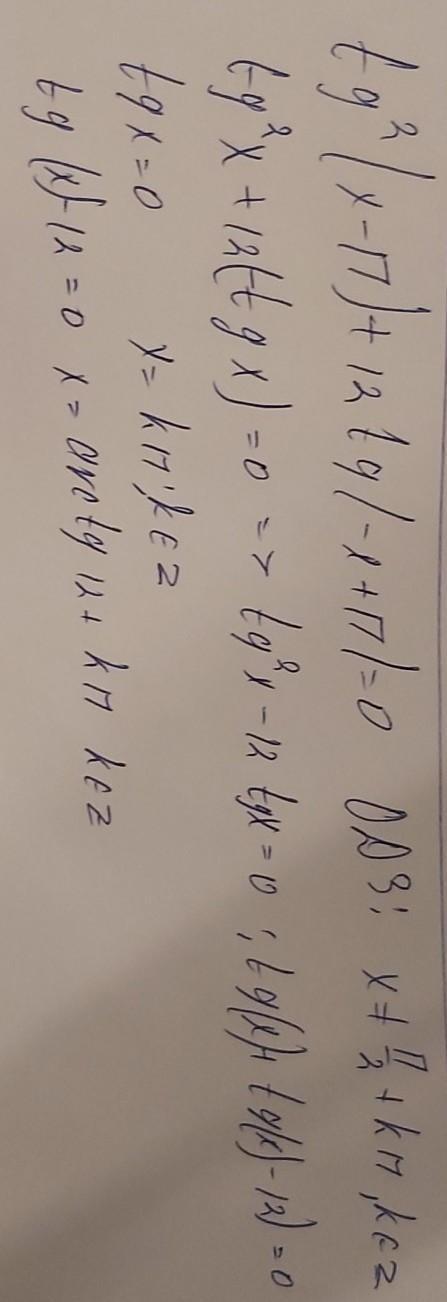 tg²(x-π)+12tg(-x+π)=0 ОДЗ: x≠π/2+kπ, k∈Z
tg²x+12(-tgx)=0 => tg²x-12tgx=0; tg(x)(tg(x)-12)=0
tgx=0 x=kπ; k∈Z
tg(x)-12=0 x=arctg12+kπ k∈Z